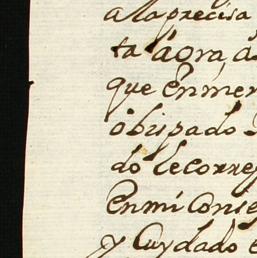 a la precisa
ta áora, á
que Enmen
óbispado
do le corres
Enmi Conse
y Cuydado e